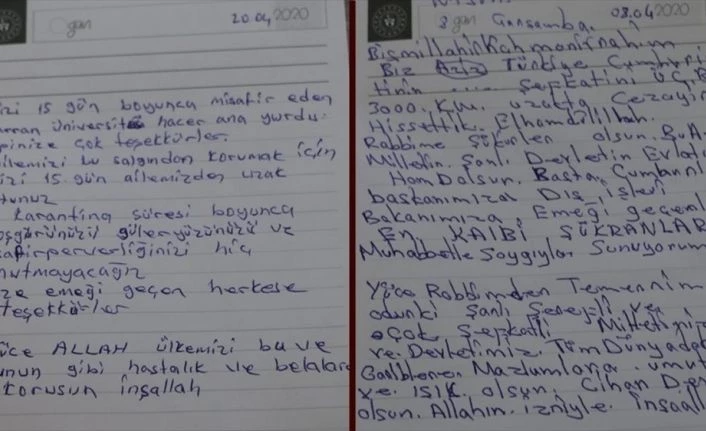 gan
20.04/2020
izi 15 gün boyunca misafir eden
rran Üniversitesi hacer ana yurdu
inize çok teşekkürler.
ilemizi bu salgından korumak için
izi 15 gün ailemizden uzak
tunuz
karantina süresi boyunca
oşgörünüzü güleryüzünüzü ve
safirperverliğinizi hiç
nutmayacağız
ze emeği geçen herkese
teşekkürler
üce ALLAH ülkemizi bu ve
unun gibi hastalık ve belalara
korusun inşallah
8 gan Çarşamba. 08.04/2020
Bismillahirrahmanirrahim
Biz Aziz Türkiye Cumhuri
tinin Şefkatini
3000. Km. uzakta Cezayir
Hissettik. Elhamdülillah.
Rabbime Şükürler olsun. Bu A
Milletin. Şanlı Devletin Evlatı
Ham Dolsun. Başta, Cumhurı
başkanımıza Dış işleri
Bakanımıza, Emeği geçenl
En KALBİ ŞÜKRANLAR
Muhabbetle Saygıyla Sunuyorum
Yüce Rabbimden Temennim
odunki Şanlı Şerefli ve
oçok Şefkatli Milleti
ve. Devletimiz. Tüm Dünyadak
Mazlumlara. umut
ve. ışık. olsun. Cihan De
olsun. Allahın. izniyle. inşaall